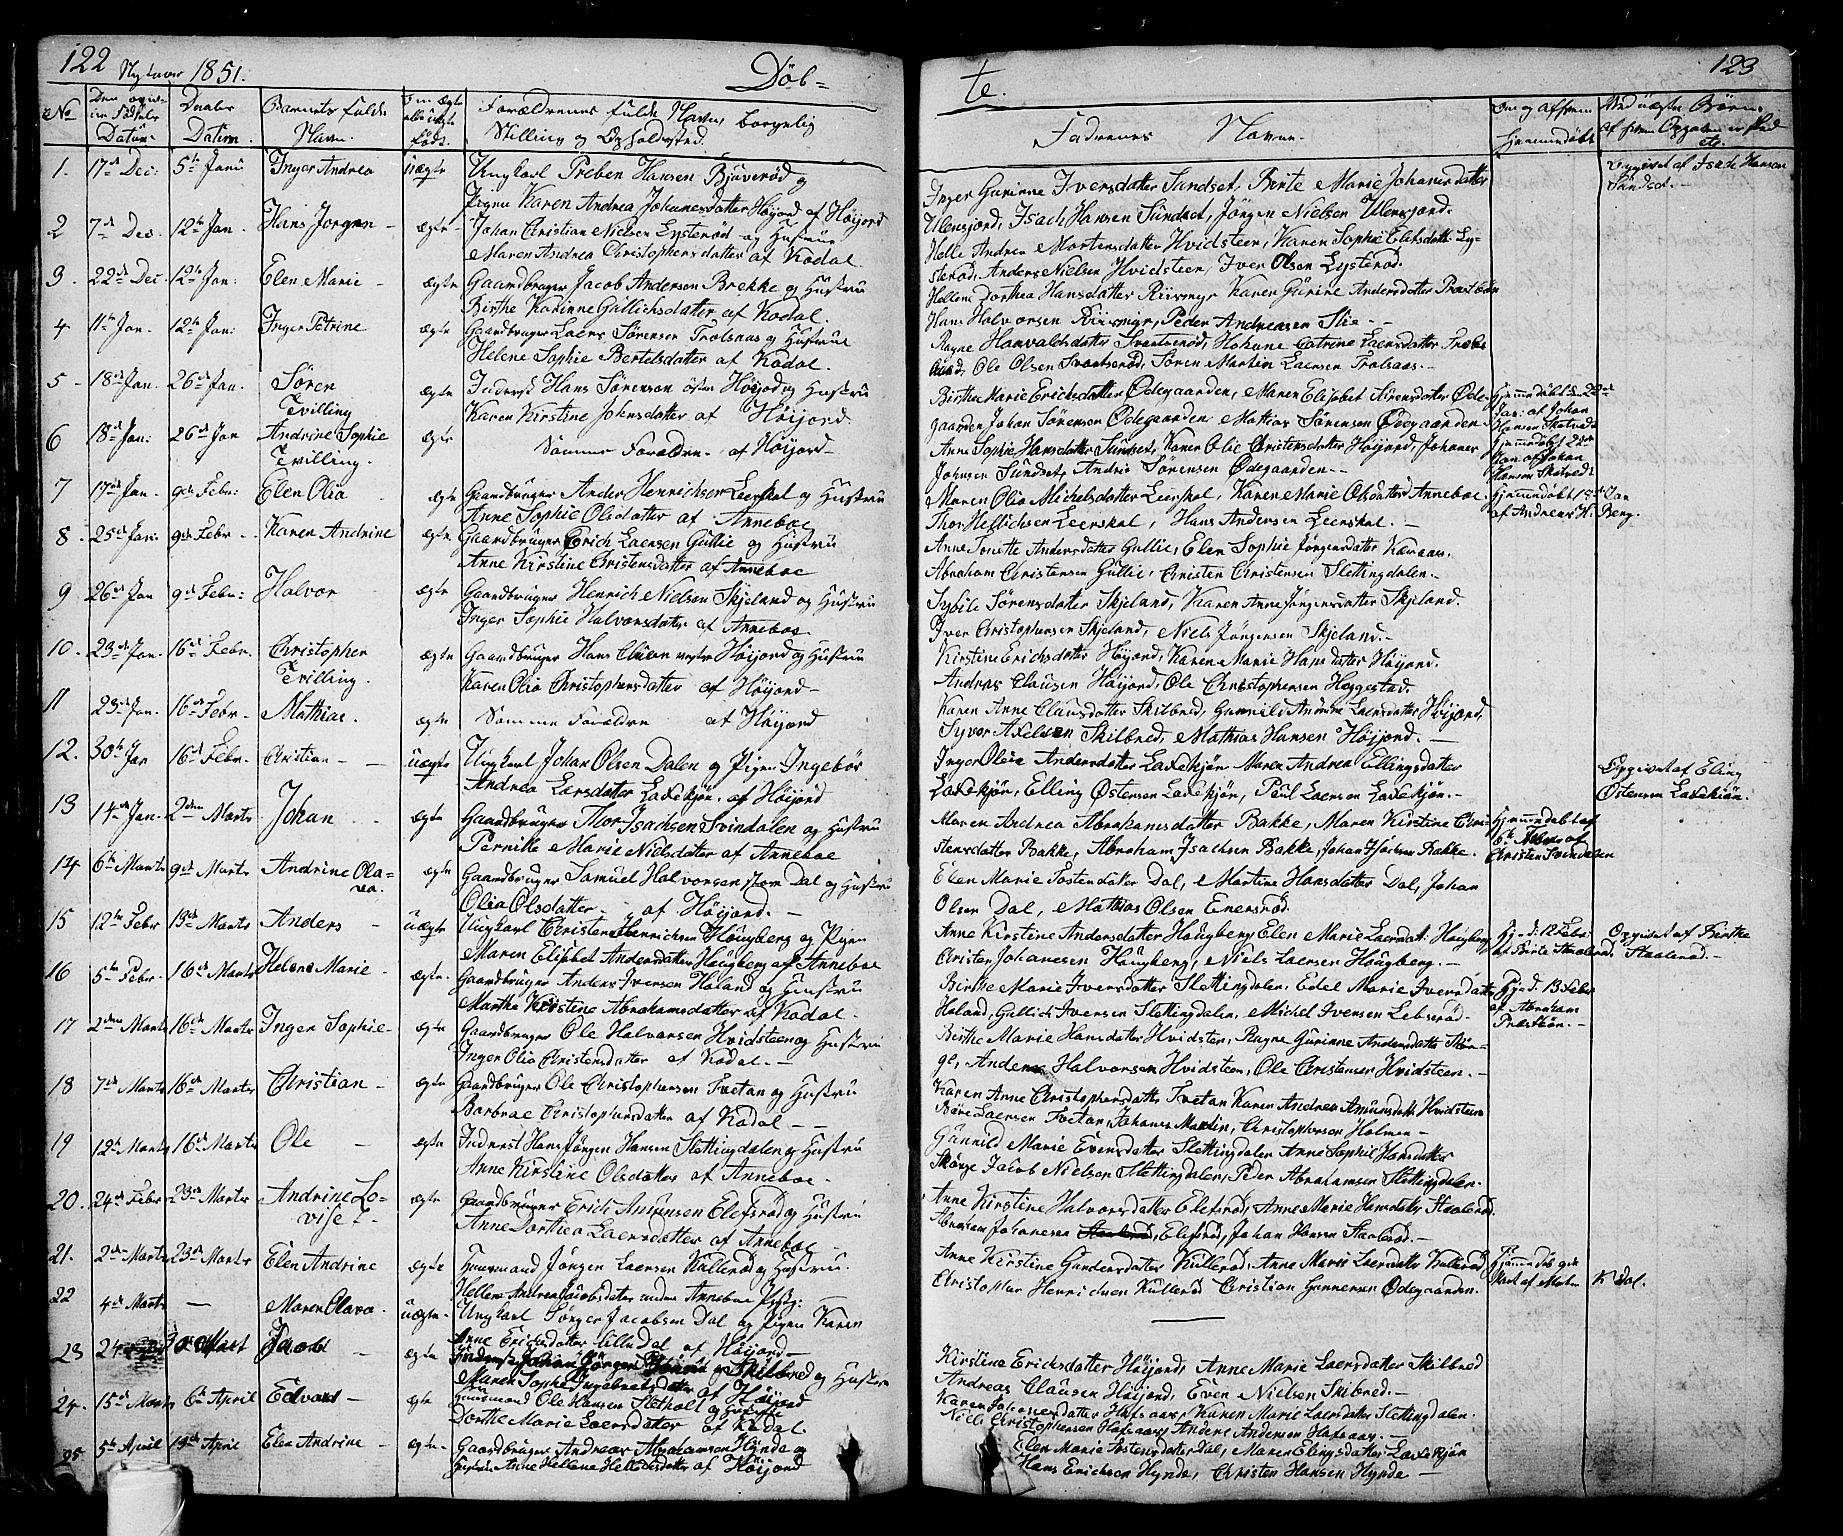 122 Nytaar 1851. Döb=
No
Datum
Datum.
Barnets fulde
Navn.
födt.
Forældrenes fulde Navn, borgerlig
Stilling og Opholdssted.
1. 17de Dec: 5te Janu Inger Andrea uægte Ungkarl Preben Hansen Bjuverød og
Pigen Karen Andrea Johannesdatter Höijord af Höijord
2 7de Dec. 12te Jan. Hans Jørgen - ægte - Johan Christian Nielsen Lysterød og Hustrue
Maren Andrea Christophersdatter af Kodal
3. 22de Dec. 12te Jan: Elen Marie - ægte Gaardbruger Jacob Andersen Brekke og Hustru
Birthe Karinne Gullichsdatter af Kodal.
4 11te Jan. 12te Jan: Inger Petrine ægte Gaardbruger Laers Sörensen Trolsaas og Hustrue
Helene Sophie Bertelsdatter af Kodal.
5 - 18de Jan. 26de Jan. Sören ægte Inderst Hans Sörensen östre Höijord og Hustru
Tvilling Karen Kirstine Johnsdatter af Höijord.
6 18de Jan: 26de Jan Andrine Sophie ægte Samme Forældre. af Höijord-
Tvilling.
7 17de Jan. 9de Febr: Elen Olia ægte Gaardbruger Anders Henrichsen Leerskal og Hustru
Anne Sophie Olsdatter af Anneboe
8 - 25de Jan: 9de Febr - Karen Andrine ægte Gaardbruger Erich Laersen Gullie og Hustru
Anne Kirstine Christensdatter af Anneboe
9 26de Jan 9de Febr: Halvor - ægte Gaardbruger Henrich Nielsen Skjeland og Hustru
Inger Sophie Halvorsdatter af Anneboe
10. 23de Jan. 16de Febr. Christopher ægte Gaardbruger Hans Clausen vestre Höijord og Hustru
Tvilling. Karen Olia Christophersdatter af Höijord-
11 23de Jan. 16de Febr - Mathias. ægte Samme Forældre af Höijord
12. 30te Jan 16de Febr. Christian - uægte Ungkarl Johan Olsen Dalen og Pigen Ingebör
Andrea Laersdatter Laxekjön. af Höijord
13 14de Jan. 2den Marts Johan - ægte Gaardbruger Thor Isachsen Svindalen og Hustru
Pernille Marie Nielsdatter af Anneboe
14 6te Marts 9de Marts Andrine Ola= ægte Gaardbruger Samuel Halvorsen store Dal og Hustru
va. Olia Olsdatter - af Höijord. -
15 12te Febr 13de Marts Anders - uægte Ungkarl Christen Henrichsen Hougberg og Pigen
Maren Elisbet Andersdatter Hougberg af Anneboe
16 5te Febr. 16de Marts Helene Marie - ægte - Gaardbruger Anders Iversen Holand og Hustru
Marthe Kirstine Abrahamsdatter af Kodal -
17 2den Marts 16de Marts Inger Sophie - ægte Gaardbruger Ole Halvorsen Hvidsteen og Hustru
Inger Olia Christensdatter af Kodal. -
18 7de Marts 16de Marts Christian - ægte Gaardbruger Ole Christophersen Tvetan og Hustru
Barbroe Christophersdatter af Kodal - -
19 12te Marts 16de Marts Ole - ægte Inderst Hans Jörgen Hansen Slettingdalen og Hustru
Anne Kirstine Olsdatter af Anneboe. -
20. 24de Febr 23de Marts Andrine Lo= ægte Gaardbruger Erich Amunsen Elefsrød og Hustru
vise Anne Dorthea Laersdatter af Anneboe -
21. 2den Marts 23de Marts Elen Andrine ægte Huusmand Jörgen Laersen Kullerød og Hustru.
Hellene Andrea Jacobsdatter
22 4de Marts - Maren Olava. uægte - Ungkarl Sörger Jacobsen Dal og Pigen Karen
Anne Ericsdatter lille Dal af Höijord -
23 24 Mart Jacob - ægte Skilbred og Hustru
Maren Sophie Ingebretsdatter af Höijord
24. 15de Marts 6te April Edvart - ægte Huusmand Ole Hansen Sletholt og Hustru
Dorthe Marie Laersdatter af Kodal.
25 5te April 13de April Elen Andrine - ægte - Gaardbruger Andreas Abrahamsen Hynde og
Hustru Anne Hellene Hellesdatter af Höijord
te. 123
Faderenes Navne.
hjemmedöbt
Ved uægte Börn.
etc.
Inger Gurinne Iversdatter Sundset, Berte Marie Johanesdatter
Ulensjord, Isach Hansen Sundset, Jörgen Nielsen Ulensjord.
Opgivet af Isach Hansen
Sundset. -
Helle Andrea Mortensdatter Hvidsteen, Karen Sophie Elefsdatt: Ly-
sterød, Anders Nielsen Hvidsteen, Iver Olsen Lysterød.
Hellene Dorthea Hansdatter Riismyr Karen Gurine Andersdatter
Hans Halvorsen Riismyr, Peder Andreasen Slie - -
Svartserød, Hohane Catrine Laersdatter
Ole Olsen Svartserød, Sören Martin Laersen Trolsaas. -
Birthe Marie Erichsdatter Ödegaarden, Maren Elisbet Sörensdatter Öde-
gaarden Johan Sörensen Ödegaarden Mathias Sörensen Ödegaarden
Hjemmedöbt d. 22de
Jan: af Johan
Hansen Skatvedt
Anne Sophie Hansdatter Sundset, Karen Olie Christensdatter Höijord, Johannes
Johnsen Sundset, Andris Sörensen Ödegaarden. -
Hjemmedöbt 22de
Jan. af Johan
Hansen Skatvedt
Maren Olia Michelsdatter Leerskal, Karen Marie Olsdatter Anneboe
Thor Hellichsen Leerskal, Hans Andersen Leerskal. -
Hjemmedöbt Jan
af Andreas H. Berg.
Anne Tonette Andersdatter Gullie, Elen Sophie Jörgensdatter Kæraas.
Abraham Christensen Gullie, Christen Christensen Slettingdalen. -
Sybile Sörensdatter Skjeland, Karen Anne Jörgensdatter Skjeland.
Iver Christophersen Skjeland, Niels Jörgensen Skjeland. -
Kirstine Erichsdatter Höijord, Karen Marie Hansdatter Höijord.
Andreas Clausen Höijord, Ole Christophersen Heggestad.
Karen Anne Clausdatter Skilbred, Gunnild Andrine Laersdatter Höijord,
Syver Axelsen Skilbred, Mathias Hansen Höijord. -
Inger Olea Andersdatter Laxekjön Maren Andrea Ellingsdatter
Laxekjön, Elling Östensen Laxekjön, Paul Laersen Laxekjön. -
Opgivet af Eling
Östensen Laxekjön.
Maren Andrea Abrahamsdatter Bakke, Maren Kirstine Chri-
stensdatter Bakke, Abraham Isachsen Bakke, Johan Isachsen Bakke.
Hjemmedöbt af
Christen Svindalen
Elen Marie Tostensdatter Dal, Martine Hansdatter Dal, Johan
Olsen Dal, Mathias Olsen Enersrød.
Anne Kirstine Andersdatter Hougberg Elen Marie Laersdatt: Hougberg
Christen Johanesen Hougberg, Niels Laersen Hougberg. -
Hj. d. 12 Febr.
af Birte Staalerød
Opgivet af Birthe
Staalerød. -
Birthe Marie Iversdatter Slettingdalen, Edel Marie Iversdatter
Holand, Gullich Iversen Slettingdalen, Michel Iversen Lebserød -
Hj. d. 13 Febr
af Abraham
Præstbön. -
Birthe Marie Hansdatter Hvidsten, Ragne Gurinne Andersdatter Skor-
ge, Anders Halvorsen Hvidsteen, Ole Christensen Hvidsteen. -
Karen Anne Christophersdatter Tvetan Karen Andrea Amunsdatt: Hvidsteen
Börre Laersen Tvetan, Johannes Martin, Christophersen Holmen -
Gunnild Marie Evensdatter Slettingdalen Anne Sophie Hansdatter
Skorge Jacob Nielsen Slettingdalen, Peder Abrahamsen Slettingdalen.
Anne Kirstine Halvorsdatter Elefsrød, Anne Marie Hansdatter Staalerød.
Abraham Johanesen Staalerød, Elefsrød, Johan Hansen Staalerød. -
Anne Kirstine Gundersdatter Kullerød, Anne Marie Laersdatter Kullerød
Christopher Henrichsen Kullerød Christian Gunnersen Ödegaarden.
Hjemmedöb 9de
Mart af Maren K Dal.
Kirstine Erichsdatter Höijord, Anne Marie Laersdatter Skilbred
Andreas Clausen Höijord, Even Nielsen Skibred. -
Karen Johannesdatter Hafsaas, Karen Marie Laersdatter Slettingdalen.
Niels Christophersen Hafsaas, Anders Andersen Hafsaas. -
Elen Marie Tostensdatter Dal, Maren Elingsdatter Laxekjön
Hans Erichsen Hynde, Christen Hansen Hynde -